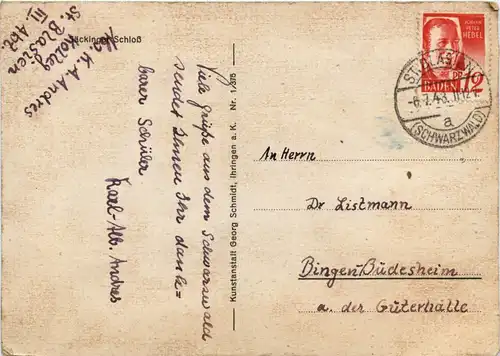 Abs. K. A. Andres
Kolleg
St. Blasien
III. Abt.
Säckinger Schloß
Viele Grüße aus dem Schwarzwald
sendet Ihnen Ihr dank=
barer Schüler
Karl-Alb. Andres
Kunstanstalt Georg Schmidt, Ihringen a. K. Nr. 1/3/5
JOHANN
PETER
HEBEL
BADEN 12
ST. BLASIEN
a
(SCHWARZWALD)
An Herrn
Dr Listmann
Bingen-Büdesheim
a. der Güterhalle